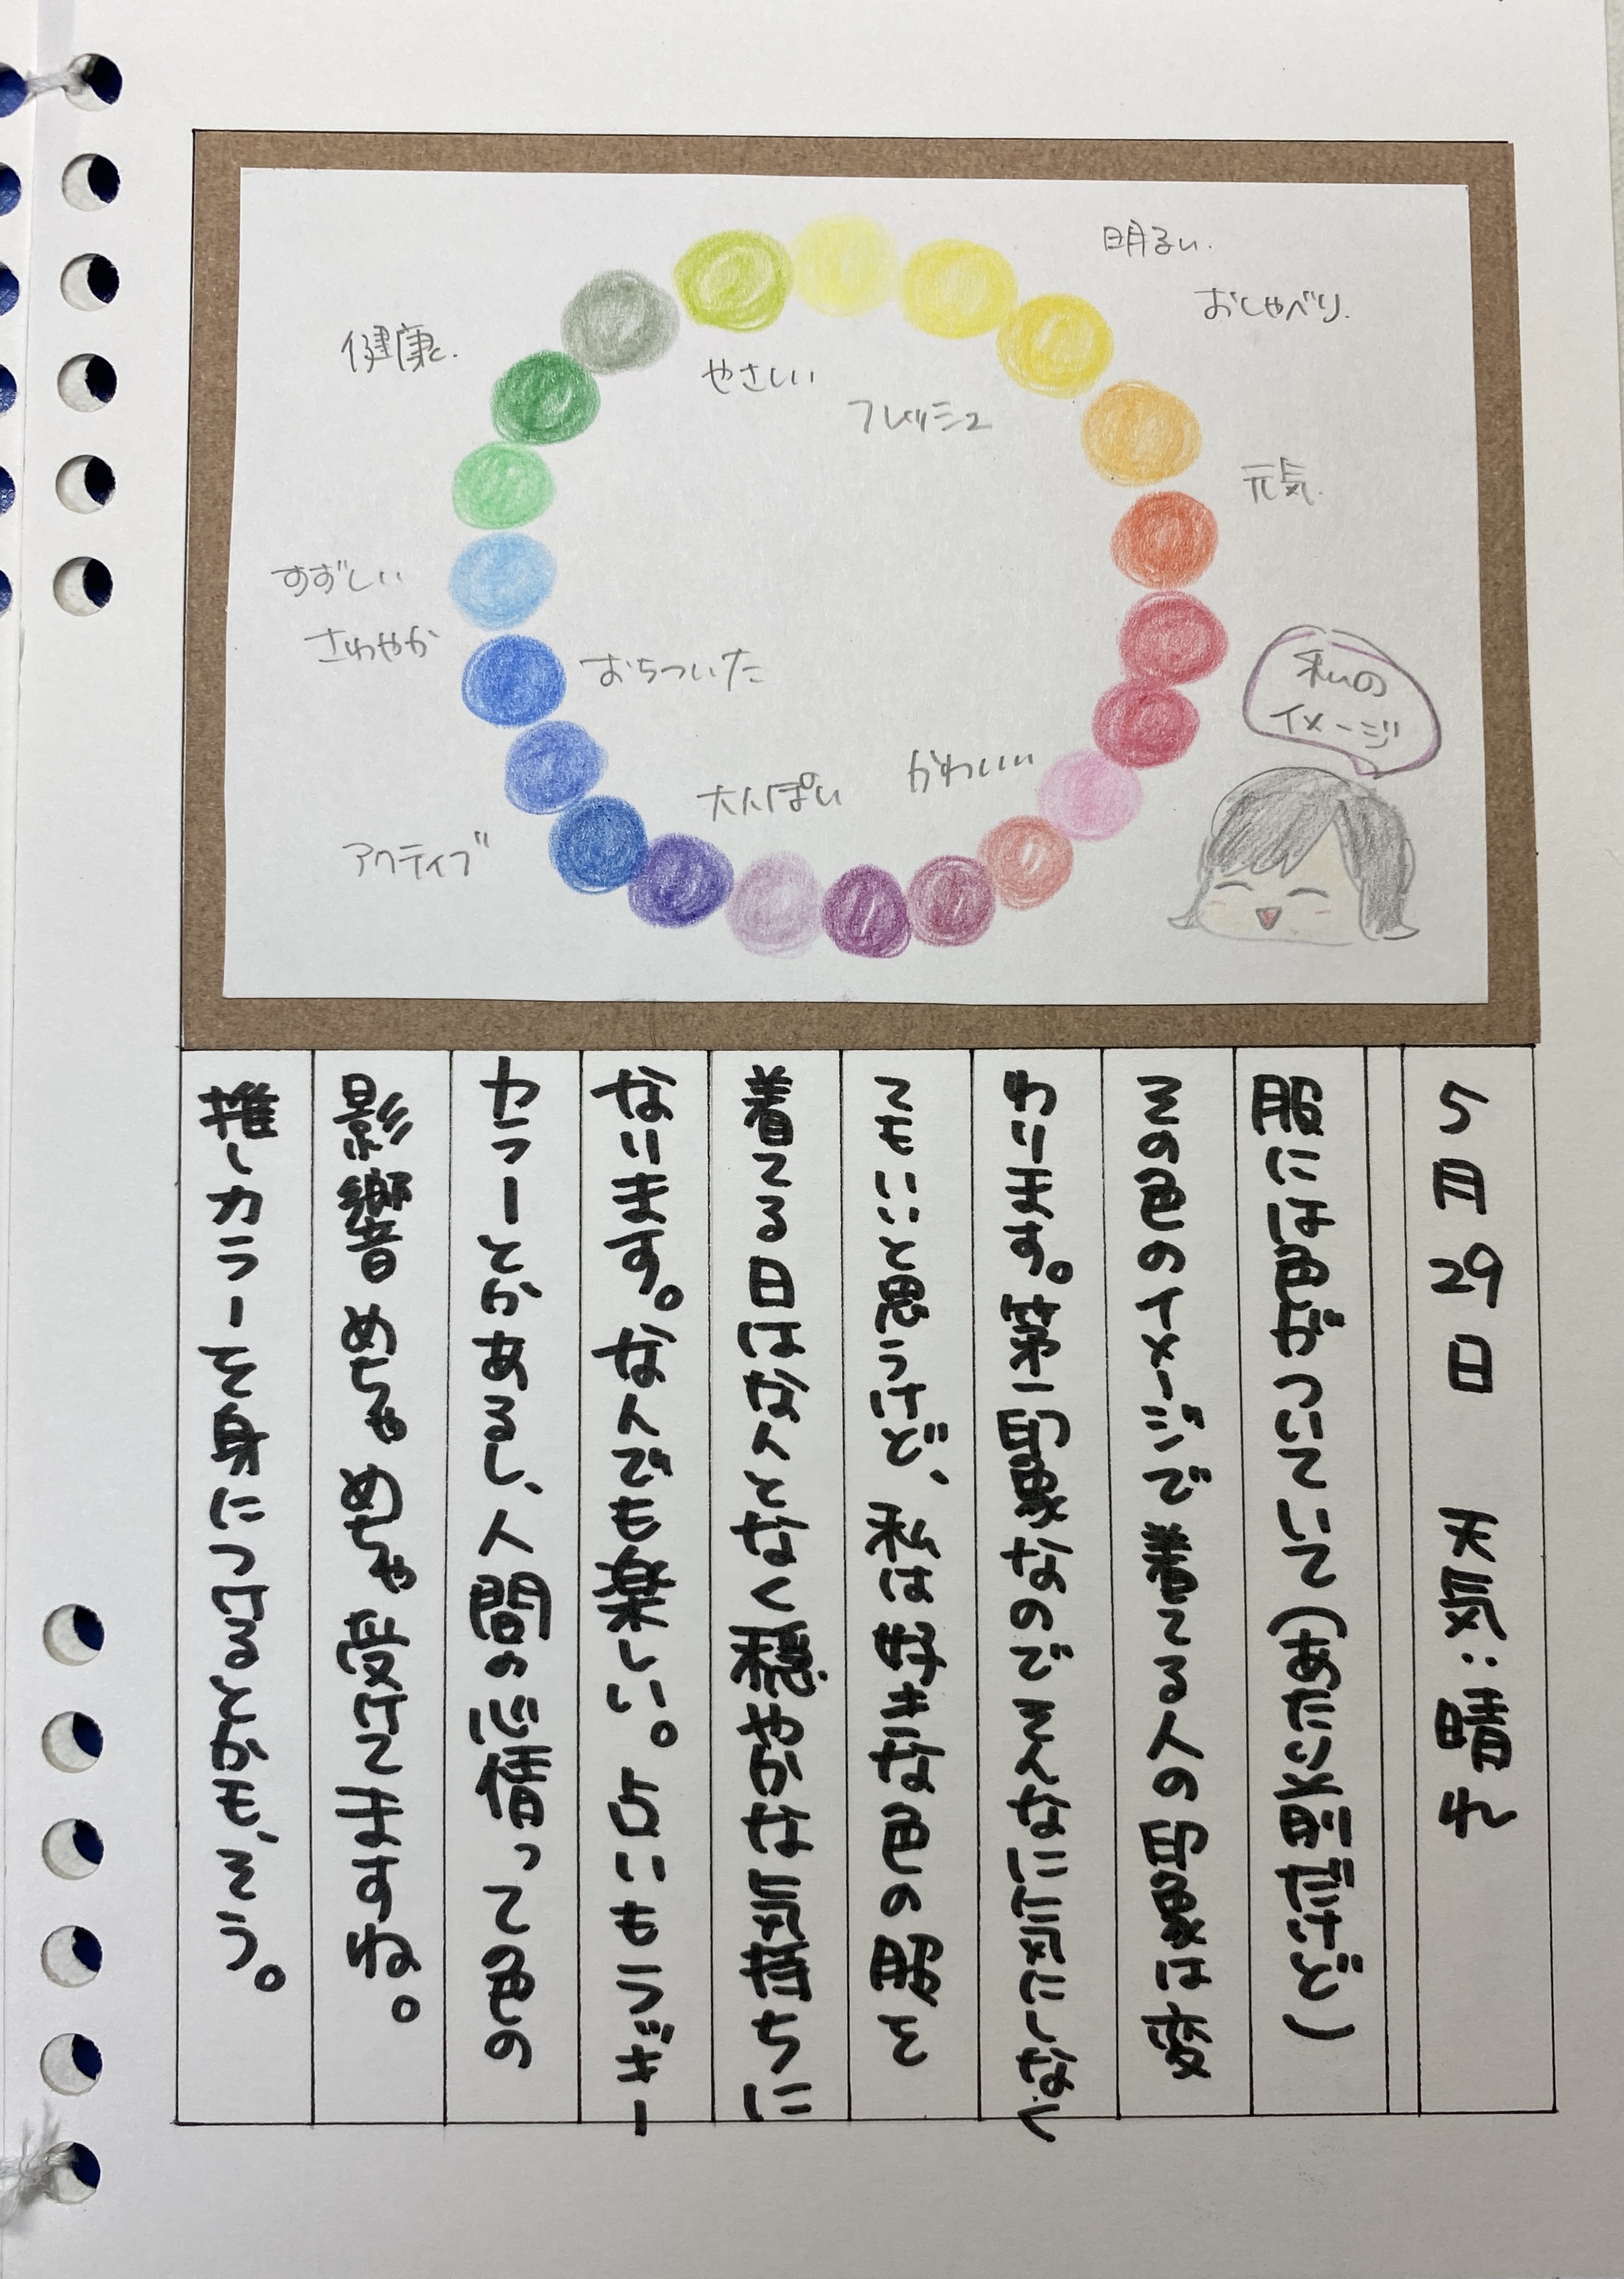 明るい.
おしゃべり.
健康.
やさしい
フレッシュ
元気.
すずしい
さわやか
おちついた
私の
イメージ
かわいい
大人っぽい
アクティブ
5月29日 天気:晴れ
服には色がついていて(あたり前だけど)
その色のイメージで着てる人の印象は変
わります。第一印象なのでそんなに気にしなく
てもいいと思うけど、私は好きな色の服を
着てる日はなんとなく穏やかな気持ちに
ないます。なんでも楽しい。占いもラッキー
カラーとかあるし、人間の心情って色の
影響めちゃめちゃ受けてますね。
推しカラーを身につけるとかも、そう。